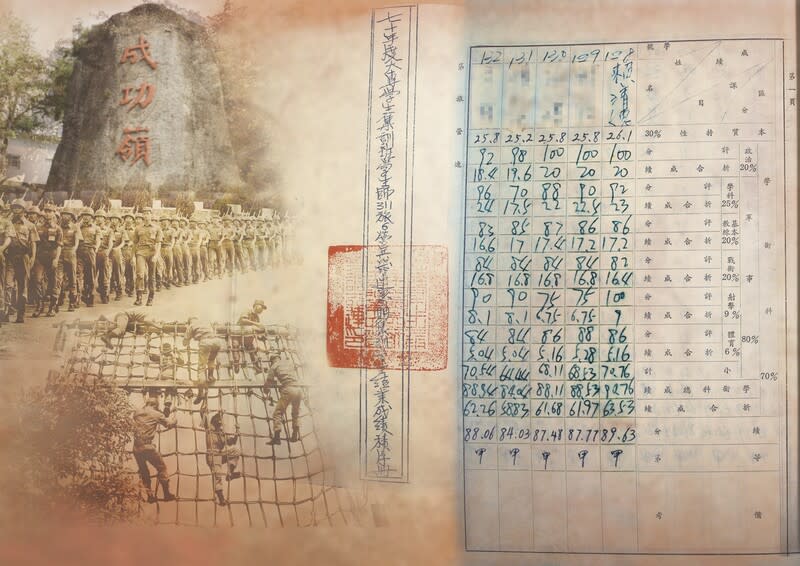 成功嶺
七十年度大專學生集訓班學生師311旅6營
畢業成績積分冊
第一頁
132 131 130 129 128
賴清德
學號 姓名 成績 課目 區分
25.8 25.2 25.8 25.8 26.1 本質性折30%
學術科70%
政治20%
92 98 100 100 100 評分
18.4 19.6 20 20 20 折合成績
軍事80%
學科25%
96 70 88 90 92 評分
24 17.5 22 22.5 23 折合成績
基本教練20%
83 85 87 86 86 評分
16.6 17 17.4 17.2 17.2 折合成績
戰術20%
84 84 84 84 82 評分
16.8 16.8 16.8 16.8 16.4 折合成績
射擊9%
90 90 75 75 100 評分
8.1 8.1 6.75 6.75 9 折合成績
體育6%
84 84 86 88 86 評分
5.04 5.04 5.16 5.28 5.16 折合成績
70.54 64.44 68.11 68.53 70.76 小計
88.94 84.04 88.11 88.53 90.76 學術科總成績
62.26 58.83 61.68 61.97 63.53 折合成績
88.06 84.03 87.48 87.77 89.63 績分
甲 甲 甲 甲 甲 等第
備考